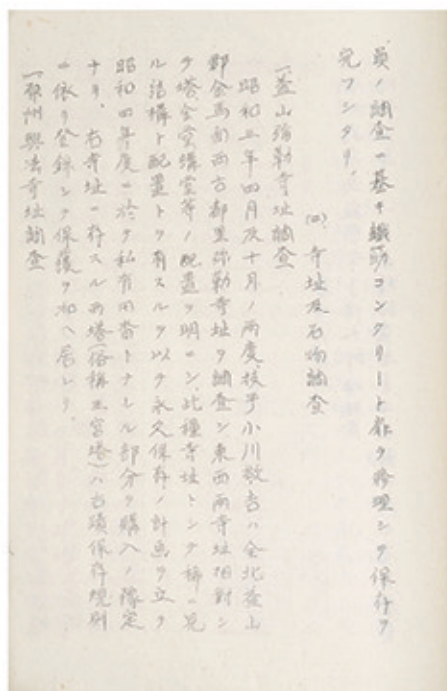 員ノ調査ニ基キ鐵筋コンクリート部ヲ修理シテ保存ヲ
完フシタリ。
(ロ)、寺址及石物調査
一、益山弥勒寺址調査
昭和三年四月及十月ノ両度、技手小川敬吉ハ全北益山
郡金馬面西古都里弥勒寺址ヲ調査シ東西両寺址相対シ
テ塔、金堂講堂等ノ配置ヲ明ニシ、此種寺址トシテ稀ニ見
ル結構ト配置トヲ有スルヲ以テ永久保存ノ計画ヲ立テ
昭和四年度ニ於テ私有田畓トナレル部分ヲ購入ノ豫定
ナリ、右寺址ニ存スル西塔(俗稱王宮塔)ハ古蹟保存規則
ニ依リ登録シテ保護ヲ加ヘ居レリ。
一、原州興法寺址調査